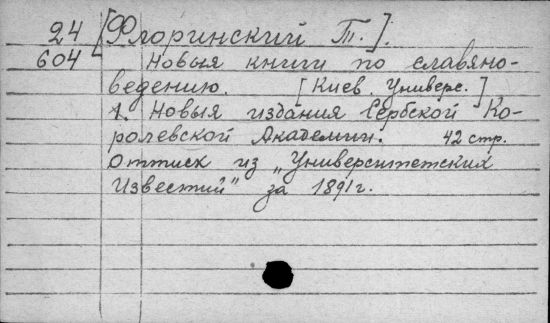 24 [Флоринский Т.].
604 Новыя книги по славяно-
ведению. [Киев. Универс.]
1. Новыя издания Сербской Ко-
ролевской Академии. 42 стр.
Оттиск из „Университетских
Известий" за 1891г.